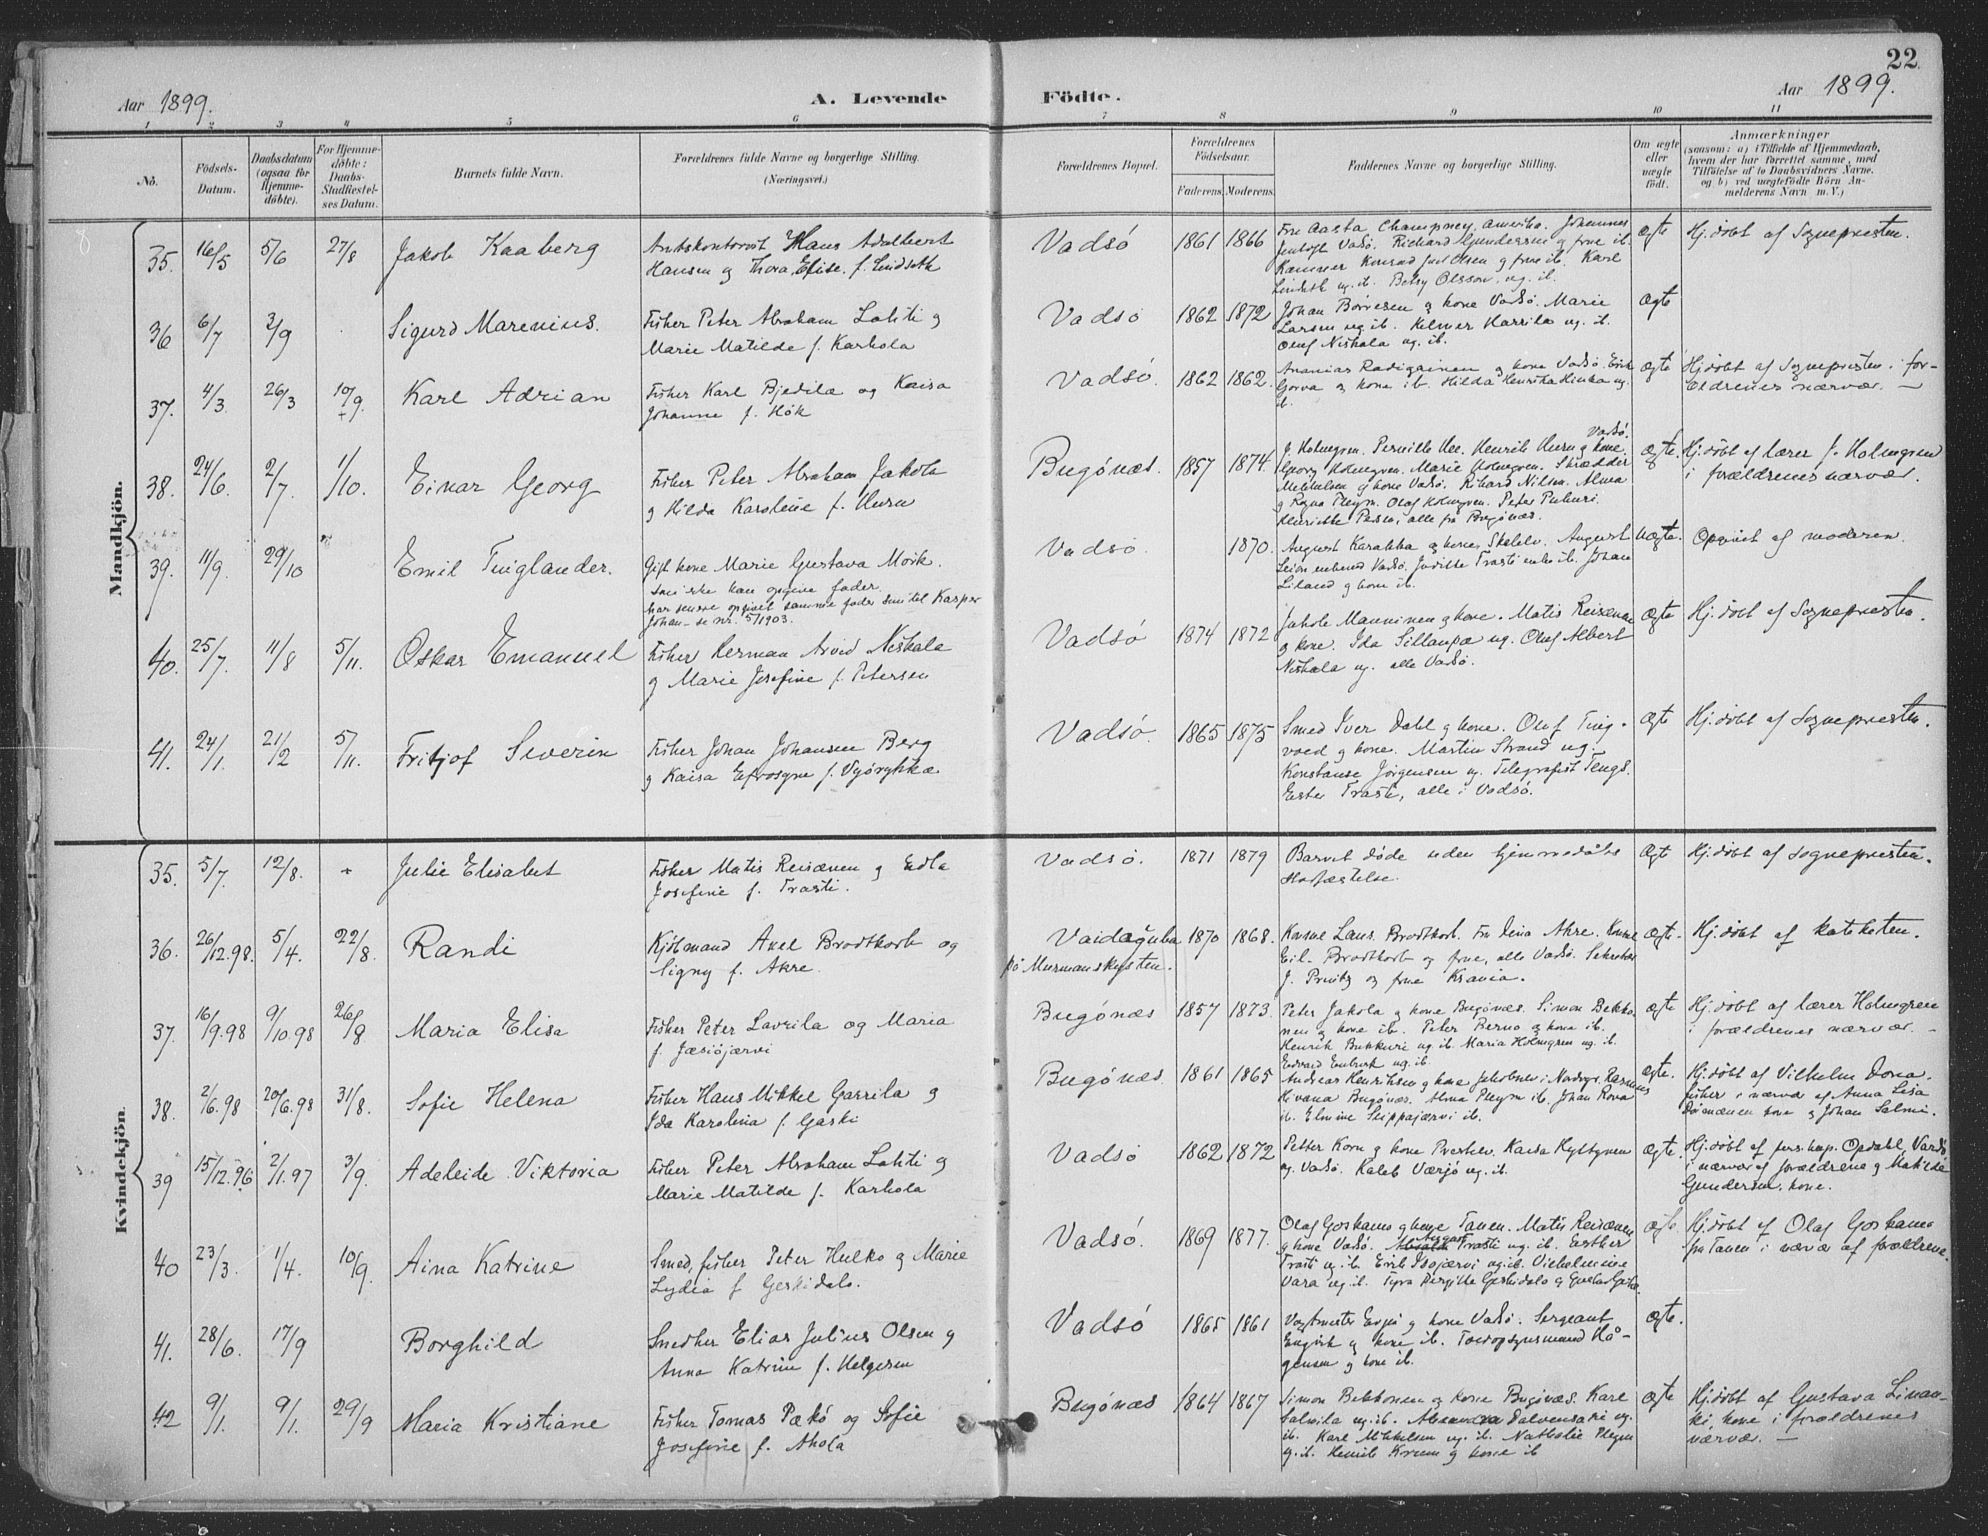 22
Aar 1899.
A. Levende Födte.
Aar 1899.
1 2 3 4 5 6 7 8 9 10 11
No.
Födsels-
Datum.
Daabsdatum
(ogsaa for
Hjemme-
döbte).
For Hjemme-
döbte:
Daabs-
Stadfæstel-
ses Datum.
Barnets fulde Navn.
Forældrenes fulde Navne og borgerlige Stilling.
(Næringsvei.)
Forældrenes Bopæl.
Forældrenes
Födselsaar.
Faderens. Moderens.
Faddernes Navne og borgerlige Stilling.
Om ægte
eller
uægte
födt.
Anmærkninger
(saasom: a) i Tilfælde af Hjemmedaab,
hvem der har forrettet samme, med
Tilföielse af to Daabsvidners Navne.
og b) ved uægtefödte Börn An-
melderens Navn m. V.)
Mandkjön.
35. 16/5 5/6 27/8 Jakob Kaaberg
Amtskontorist Hans Adalbert
Hansen og Thora Elise f. Lindseth
Vadsö 1861 1866
Fru Aasta Champney, Amerika. Johannes
Vadsö. Richard Gundersen og frue ib.
Kæmner Konrad Olsen og frue ib. Karl
Lindseth ug. ib. Betsy Olsson ug. ib.
ægte
Hj. döbt af Sognepresten.
36 6/7 3/9 Sigurd Marenius.
Fisker Peter Abraham Lahti og
Marie Matilde f. Karhola
Vadsö 1862 1872
Johan Børiesen og kone Vadsö. Marie
Larsen ug. ib. Hilmer Harrila ug. ib.
Oluf Niskala ug. ib.
ægte
37. 4/3. 26/3 10/9. Karl Adrian
Fisker Karl Bjedila og Kaisa
Johanne f. Hök
Vadsö. 1862 1862.
Ananias Radigainen og kone Vadsö. Erik
Gorva og kone ib. Hilda Henrika Hinka ug.
ib.
ægte
Hj. döbt af Sognepresten i for-
ældrenes nærvær. —
38. 24/6. 2/7 1/10. Einar Georg
Fisker Peter Abraham Jakola
og Hilda Karoline f. Huru
Bugönæs. 1857 1874.
Vadsö.
J. Holmgren. Pernille Vee. Henrik Huru og kone.
Georg Holmgren. Marie Holmgren. Skrædder
Mikkelsen og kone Vadsö. Rikard Nilsen. Alma
og Ragna Pleym. Olaf Holmgren. Peter Pukuri.
Henriette Peders, alle fra Bugönæs.
ægte.
Hj. döbt af lærer J. Holmgren
i forældrenes nærvær.
39. 11/9. 29/10 Emil Tuiglander.
Gift kone Marie Gustava Mörk.
som ikke kan opgive fader.
har senere opgivet samme fader som til Kasper
Johan - se nr. 5/1903.
Vadsö. 1870.
August Karakka og kone Skalelv. August
Leionen Vadsö. Juditte Trasti enke ib. Johan
Liland og kone ib.
uægte.
Opgivet af moderen.
40. 25/7. 11/8 5/11. Oskar Emanuel
Fisker Herman Arvid Niskala
og Marie Josefine f. Petersen
Vadsö 1874 1872
Jakob Manninen og kone. Matis Reisænen
og kone. Ida Sillanpæ ug. Oluf Albert
Niskala ug. alle Vadsö.
ægte
Hj. döbt af Sognepresten.
41. 24/1. 21/2 5/11. Fritjof Severin
Fisker Johan Johansen Berg
og Kaisa Efrosyne f. Vyörykkæ
Vadsö 1865 1875
Smed Iver Dahl og kone. Oluf Ting-
voed og kone. Martin Strand ug.
Konstanse Jörgensen ug. Telegrafist Tengs.
Ester Trasti, alle i Vadsö.
ægte
Hj. döbt af Sognepresten.
Kvindekjön.
35. 5/7. 12/8. Julie Elisabet
Fisker Matis Reisænen og Edla
Josefine f. Trasti.
Vadsö. 1871 1879
Barnet döde uden hjemmedåbs
stadfæstelse.
ægt
Hj. döbt af Sognepresten.
36. 26/12.98. 5/4. 22/8. Randi
Kjöbmand Axel Brodtkorb og
Signy f. Akre.
Vaidaguba
på Murmanskysten. 1870 1868.
Konsul Laurs. Brodtkorb. Fru Dina Akre. Konsul
Eil. Brodtkorb og frue, alle Vadsö. Sekretær
J. Prinitz og frue Krania.
ægte.
Hj. döbt af kateketen.
37. 16/9.98 9/10.98 26/8. Maria Elisa
Fisker Peter Lavrila og Maria
f. Jæsiöjærvi
Bugönæs 1857 1873.
Peter Jakola og kone Bugönæs. Simon Bekko-
nen og kone ib. Peter Perno og kone ib.
Henrik Pukkuri ug. ib. Maria Holmgren ug. ib.
Edvard ug. ib.
ægte
Hj. döbt af lærer Holmgren
i forældrenes nærvær. —
38. 2/6.98 20/6.98 31/8. Sofie Helena
Fisker Hans Mikkel Garrila og
Ida Karolina f. Gaski
Bugönæs. 1861 1865
Andreas Henriksen og kone Jakobselv i Nordvgr. Rasmus
Kivana Bugönæs. Alma Pleym ib. Johan Rova
ib. Elmine Seippajærvi ib.
ægte.
Hj. döbt af Vilhelm Dona.
fisker i nærvær af Anna Lisa
kone og Johan Salmi.
39 15/12.96 2/1.97 3/9. Adeleide Viktoria
Fisker Peter Abraham Lahti og
Marie Matilde f. Karhola
Vadsö 1862 1872
Petter Korn og kone Presteln. Kaisa Kyttynen
ug. Vadsö. Kaleb Værjö ug. ib.
ægte.
Hj. döbt af pers. kap. Opdahl Vardö
i nærvær af forældrene og Matilde
Gundersen, kone.
40 23/3. 1/4. 10/9. Aina Katrine
Smed, fisker Peter Hulko og Marie
Lydia f. Geskidalo.
Vadsö. 1869 1877.
Olaf Goskamo og kone Tanen. Matis Reisænen
og kone Vadsö. Trasti ug. ib. Esther
Trasti ug. ib. Erik Isojærvi ug. ib. Vilhelmine
Vara ug. ib. Tyra Birgitte Geskidalo og
ægte
Hj. döbt af Olaf Goskamo
fra Tanen i nærvær af forældrene.
41. 28/6. 17/9 Borghild
Snedker Elias Julius Olsen og
Anna Katrine f. Helgesen
Vadsö 1865 1861
Vagtmester Evjen og kone Vadsö. Sergeant
Engvik og kone ib. Toldopsynsmand Hå-
gensen og kone ib.
ægte.
42 9/1. 9/1. 29/9 Maria Kristiane
Fisker Tomas Pækö og Sofie
Josefine f. Ahola
Bugönæs 1864 1867
Simon Bekkonen og kone Bugönæs. Karl
Salvila ug. ib. Alexandra Salvensaari ug.
ib. Karl Mikkelsen ug. ib. Nathalie Pleym
ug. ib. Henrik Krum og kone ib
ægte
Hj. döbt af Gustava Linan-
ki kone i forældrenes
nærvær. —